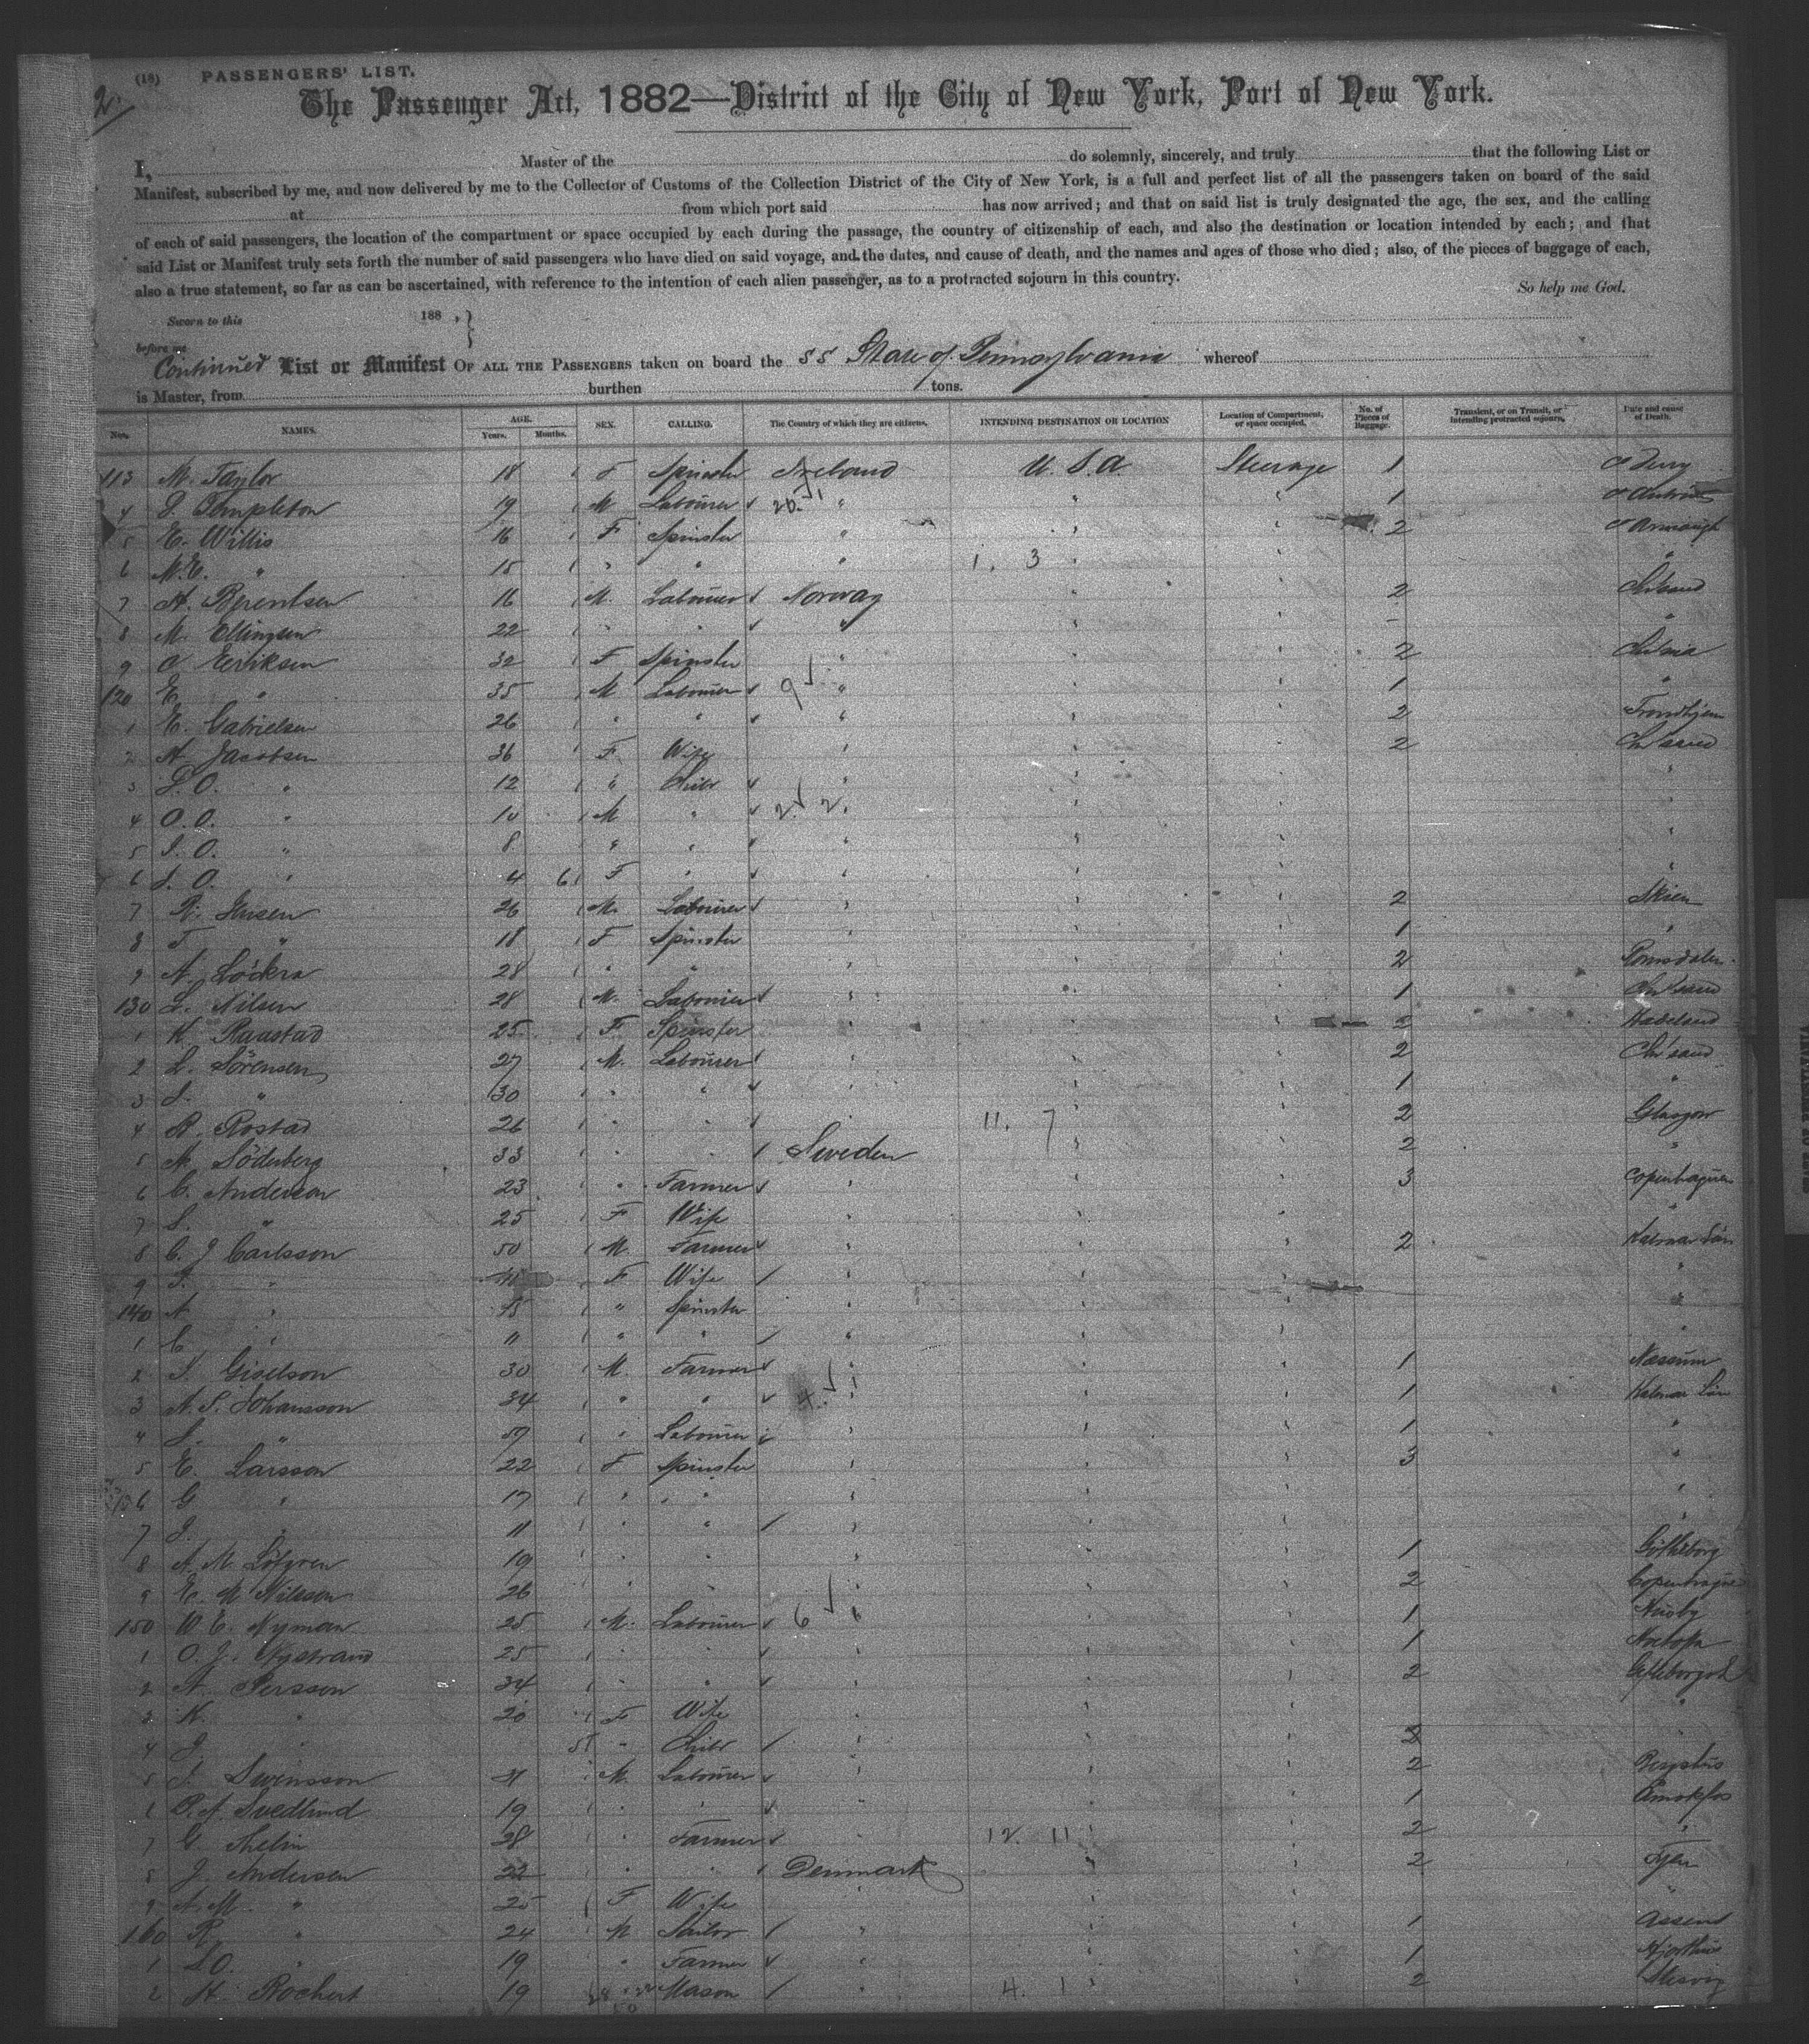 2.
(18) PASSENGERS' LIST.
The Passenger Act, 1882—District of the City of New York, Port of New York.
I, Master of the do solemnly, sincerely, and truly that the following List or
Manifest, subscribed by me, and now delivered by me to the Collector of Customs of the Collection District of the City of New York, is a full and perfect list of all the passengers taken on board of the said
at from which port said has now arrived; and that on said list is truly designated the age, the sex, and the calling
of each of said passengers, the location of the compartment or space occupied by each during the passage, the country of citizenship of each, and also the destination or location intended by each; and that
said List or Manifest truly sets forth the number of said passengers who have died on said voyage, and the dates, and cause of death, and the names and ages of those who died; also, of the pieces of baggage of each,
also a true statement, so far as can be ascertained, with reference to the intention of each alien passenger, as to a protracted sojourn in this country.
So help me God.
Sworn to this 188 , }
before me
Continued List or Manifest OF ALL THE PASSENGERS taken on board the SS State of Pennsylvania whereof
is Master, from burthen tons.
Nos. NAMES. AGE. Years. Months. SEX. CALLING. The Country of which they are citizens. INTENDING DESTINATION OR LOCATION Location of Compartment, or space occupied. No. of Pieces of Baggage. Transient, or on Transit, or intending protracted sojourn. Date and cause of Death.
113 M. Taylor 18 F Spinster Ireland U.S.A Steerage 1 Co Derry
4 Templeton 19 M Labourer 20 " " " 1 Co Antrim
5 E. Willis 16 F Spinster " " " 2 Co Armagh
6 M.E. " 15 " " " 1. 3 " " "
7 A. Berentsen 16 M. Labourer Norway " " 2 Ch'sand
8 M. Ellingsen 22 " " " " " "
9 C Eeriksen 32 F Spinster " " " 2 Ch'nia
120 E " 35 M Labourer 9 " " " 1 "
1 E. Gabrielsen 26 " " " " " 2 Trondhjem
2 A Jacobsen 36 F Wife " " " 2 Ch'sand
3 L.O. " 12 " Child " " " "
4 O.O. " 10 M " 2 2. " " "
5 O. " 8 " " " " " "
6 O. " 4 6 F " " " " "
7 Jensen 26 M. Labourer " " " 2 Skien
8 T " 18 F Spinster " " " 1 "
9 A. Löckra 28 " " " " " 2 Romsdalen
130 L. Nilsen 28 M. Labourer " " " 1 Ch'sand
1 K. Raastad 25 F. Spinster " " " 2 Hadeland
2 L. Sörensen 27 M. Labourer " " " 2 Ch'sand
3 " 30 " " " " " 1 "
4 Rostad 26 " " 11. 7 " " 2 Glasgow
5 Söderberg 33 " " Sweden " " 2 "
6 C. Anderson 23 " Farmer " " " 3 Copenhagen
7 S. " 25 F Wife " " " "
8 C. J Carlsson 50 M. Farmer " " " 2 Kalmar Län
9 " F Wife " " " "
140 A " 15 " Spinster " " " "
1 C " 11 " " " " " "
2 Giselson 30 M. Farmer " " " 1 Nassum
3 A.S. Johansson 34 " " 4. " " " 1 Kalmar Län
4 " 59 " Labourer " " 1 "
5 E. Larsson 22 F Spinster " " " 3 "
6 G " 17 " " " " " "
7 J. " 11 " " " " " "
8 A.M. Löfgren 19 " " " " 1 Götheborg
9 E. M Nilsson 26 " " " " 2 Copenhagen
150 W E. Nyman 25 M. Labourer 6 " " " 1
1 O. J. Nystrand 25 " " " " " 1
2 A. Persson 34 " " " " " 2
3 K. " 20 F Wife " " " "
4 J. " 5 " Child " " " 2 "
5 Swensson 31 M. Labourer " " " 2
6 Svedlund 19 " " " " " 1
7 G. Thelin 28 " Farmer " 12. 11 " " 2 "
8 J. Andersen 22 " " Denmark " " 2 Fyen
9 A.M. " 25 F Wife " " " "
160 R. " 24 M Sailor " " " 1 Assens
1 O. " 19 " Farmer " " " 1
2 H. Rochert 19 " Mason 4. 1 " " 2